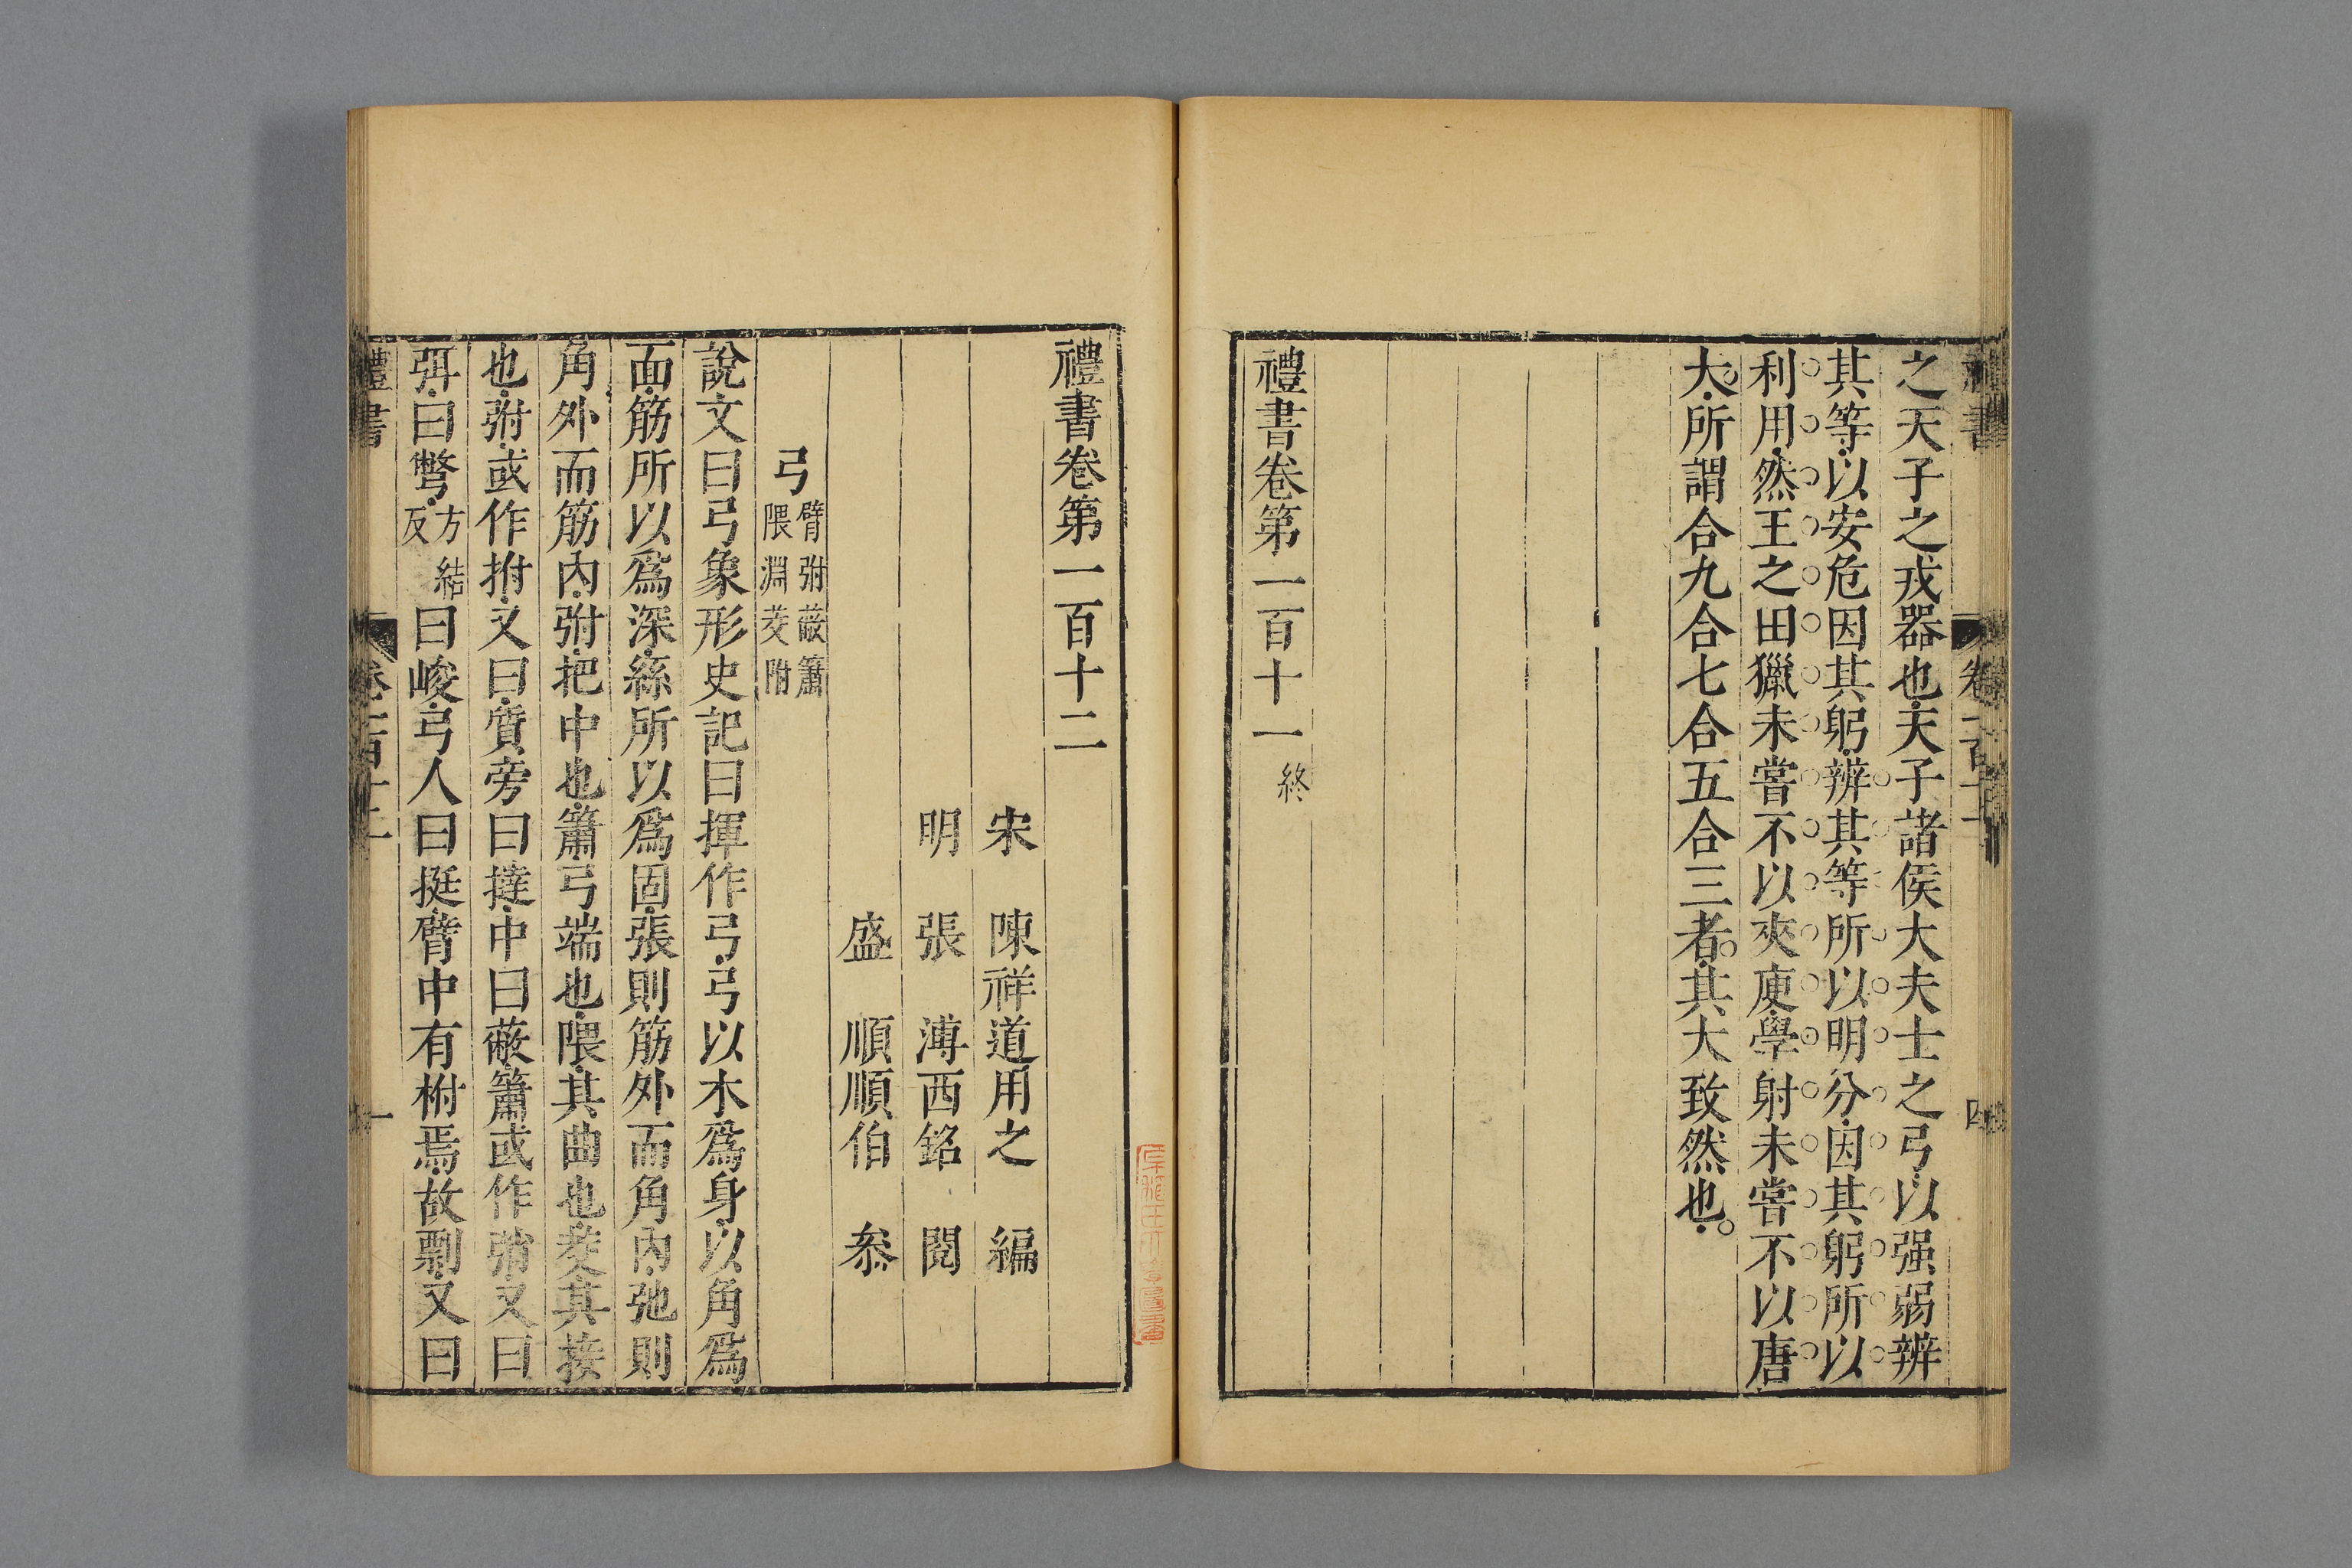 之天子之戎器也天子諸侯大夫士之弓以强弱辨
其等以安危因其躬辨其等所以明分因其躬所以
利用然王之田獵未嘗不以夾庾學射未嘗不以唐
大所謂合九合七合五合三者其大致然也
禮書卷第一百十一終
禮書卷第一百十二
宋 陳祥道用之 編
明 張 溥西銘 閱
盛 順順伯 叅
弓 臂弣蔽簫
隈淵茭附
說文曰弓象形史記曰揮作弓弓以木爲身以角爲
面筋所以爲深絲所以爲固張則筋外而角內弛則
角外而筋內弣把中也簫弓端也隈其曲也茭其接
也弣或作拊又曰質旁曰撻中曰蔽簫或作弰又曰
弭曰弊方結反曰峻弓人曰挺臂中有柎焉故剽又曰
禮書 卷一百十二 一